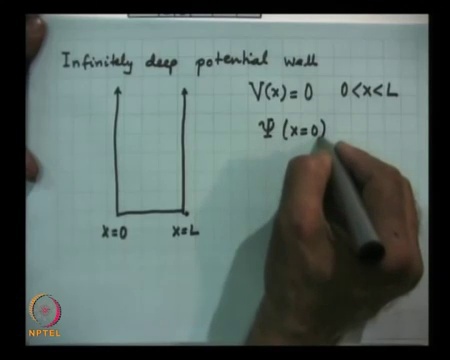 Infinitely deep potential well
V(x) = 0 0 < x < L
Ψ (x=0)
x=0 x=L
NPTEL